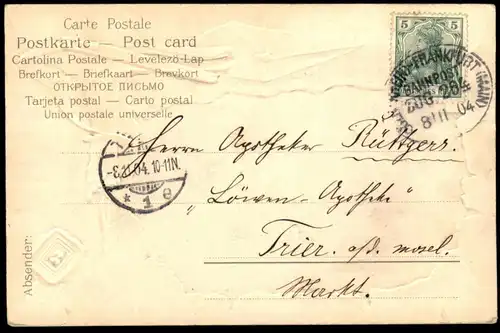 Carte Postale
Postkarte — Post card
Cartolina Postale — Levelezö-Lap
Brefkort — Briefkaart — Brevkort
ОТКРЫТОЕ ПИСЬМО
Tarjeta postal — Carto postal
Union postale universelle
5 5
FRANKFURT (MAIN)
BAHNPOST
ZUG
8 11 04
-8.11.04. 10-11N.
* 1 e
Herrn Apotheker Rüttgers.
"Löwen-Apotheke"
Trier. a/d. mosel.
Markt.
Absender: